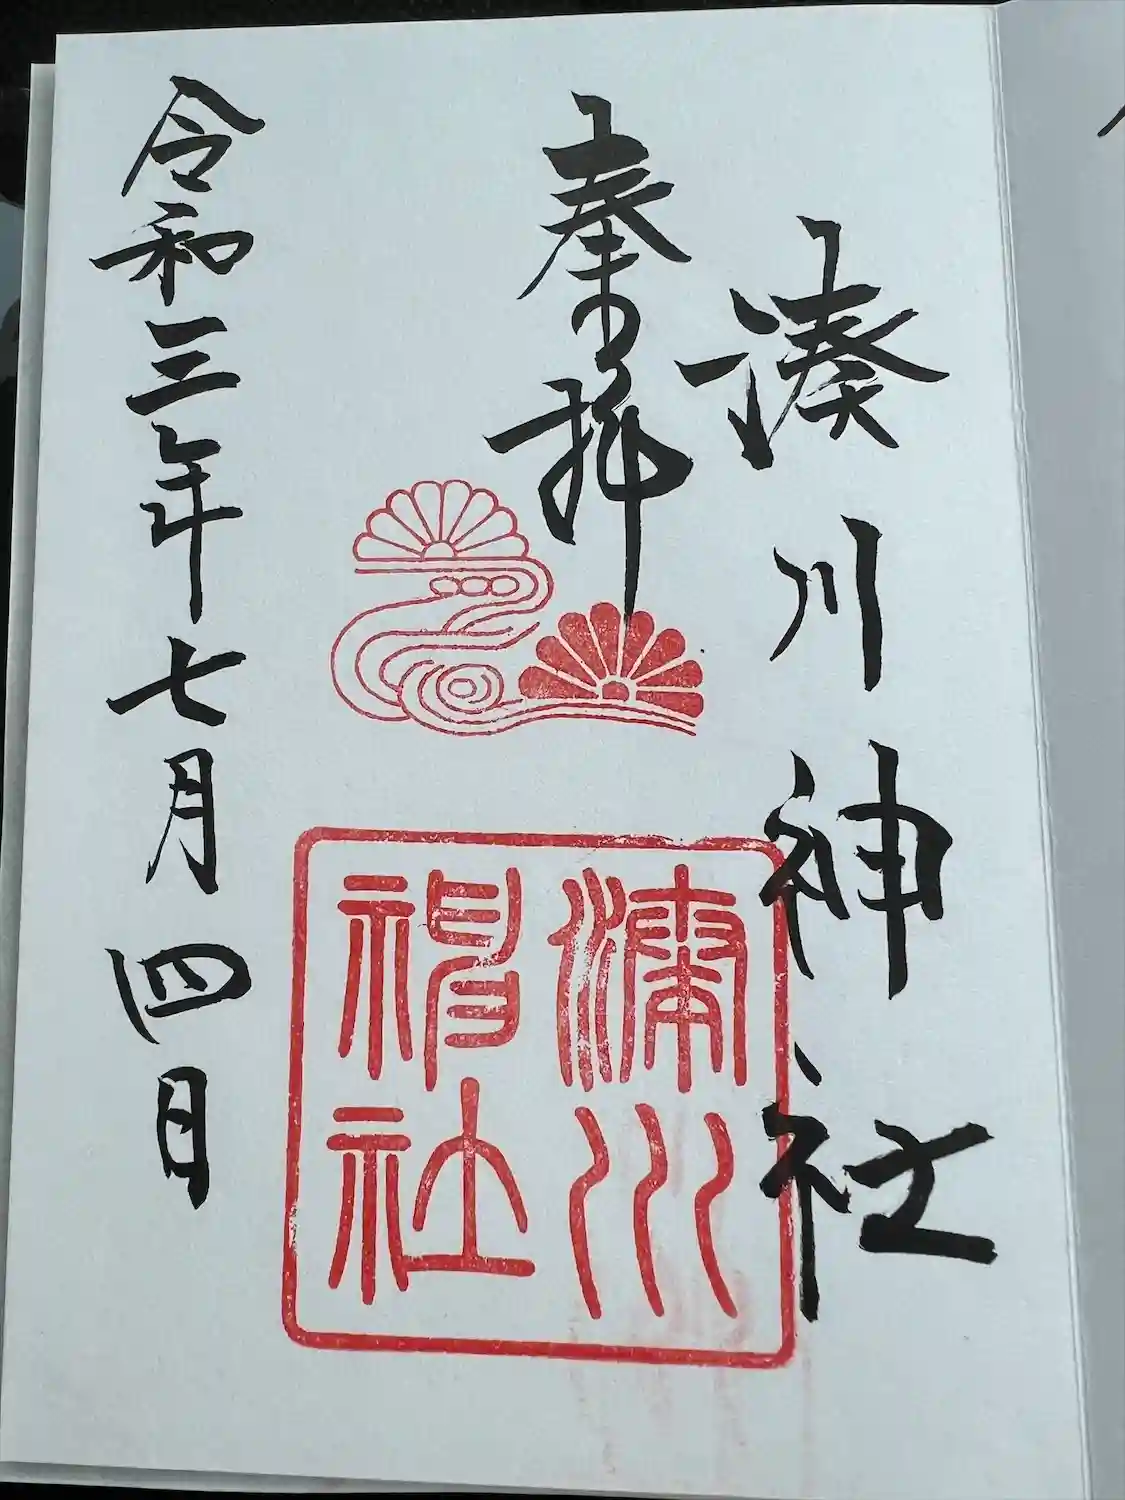 湊川神社
奉拝
令和三年七月四日
湊川
神社